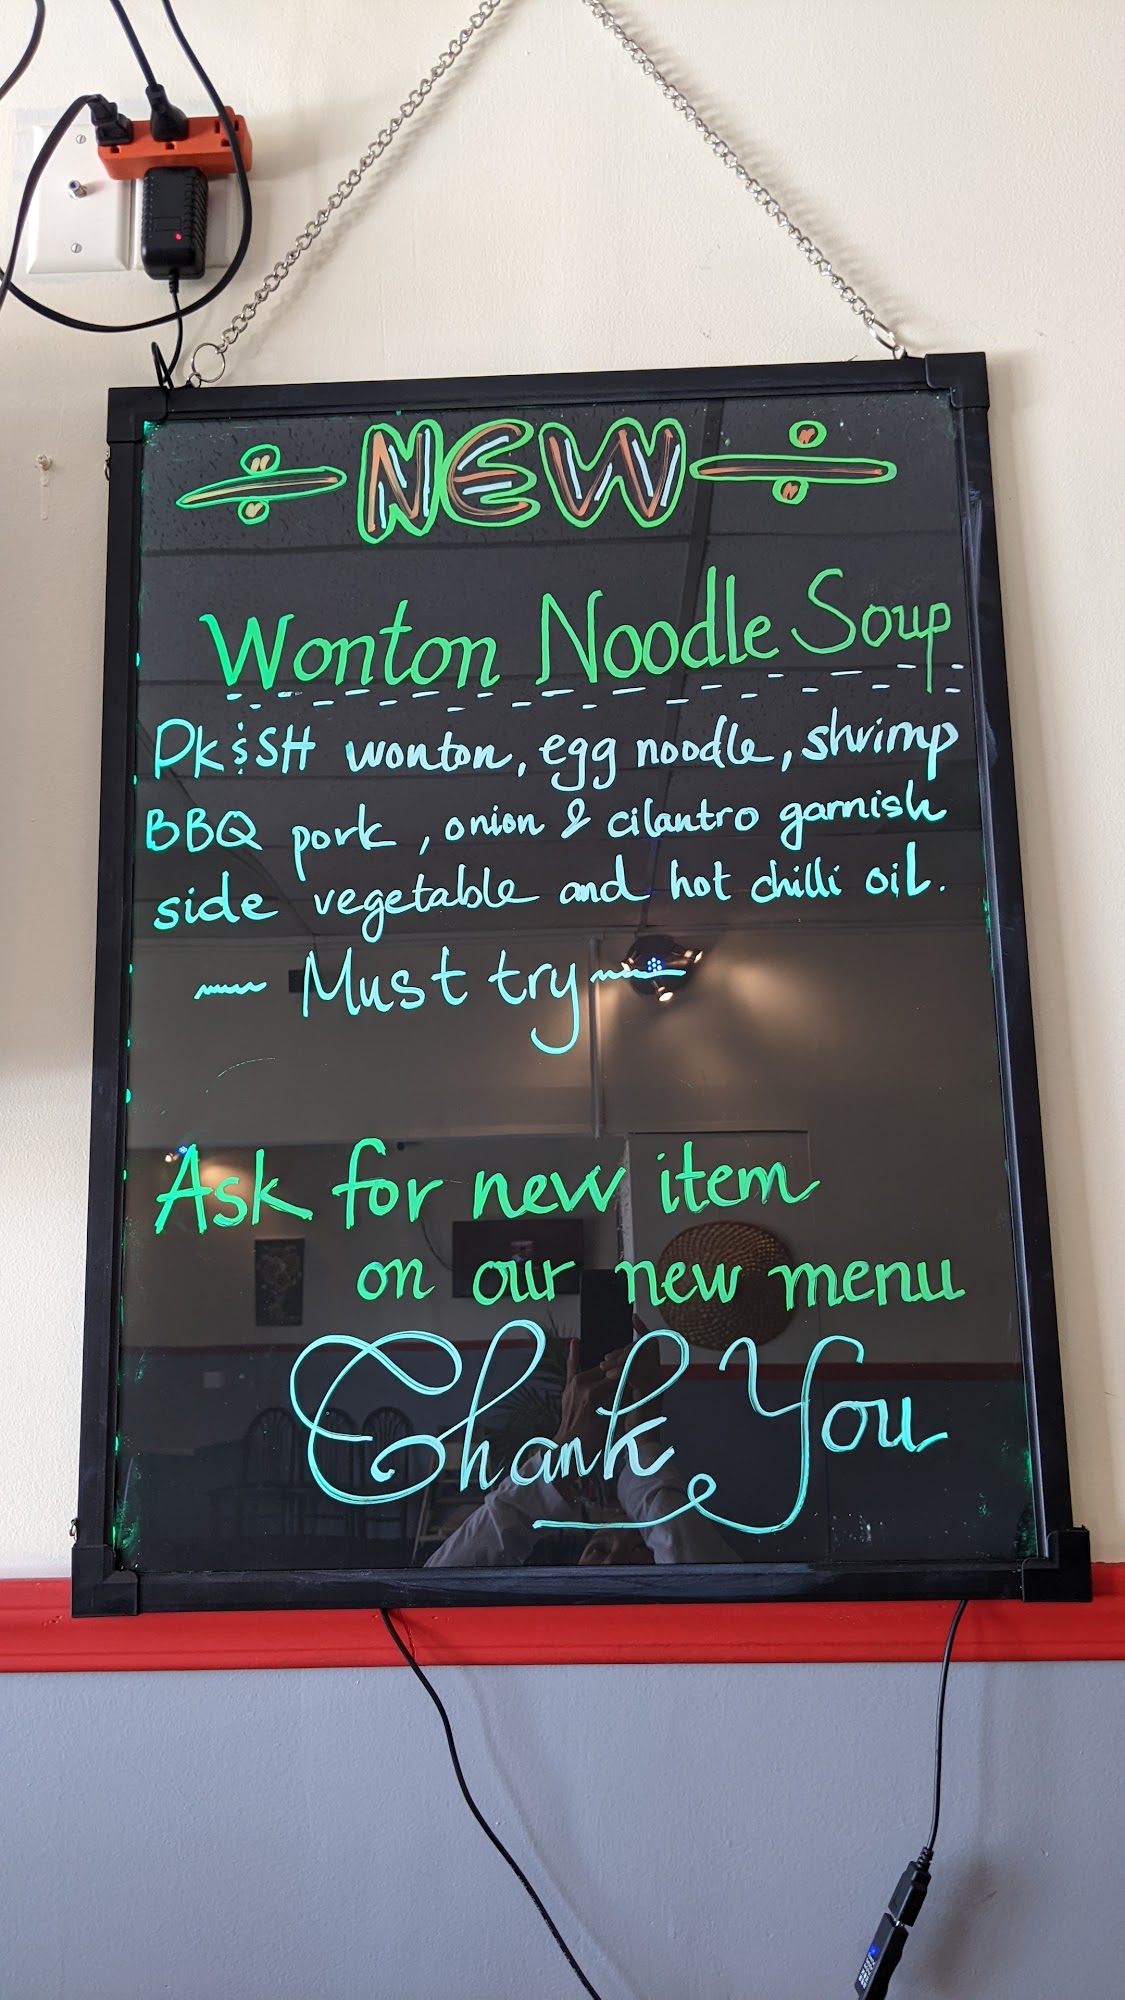 NEW
Wonton Noodle Soup
PK & SH wonton, egg noodle, shrimp
BBQ pork, onion & cilantro garnish
side vegetable and hot chilli oil.
Must try
Ask for new item
on our new menu
Thank You